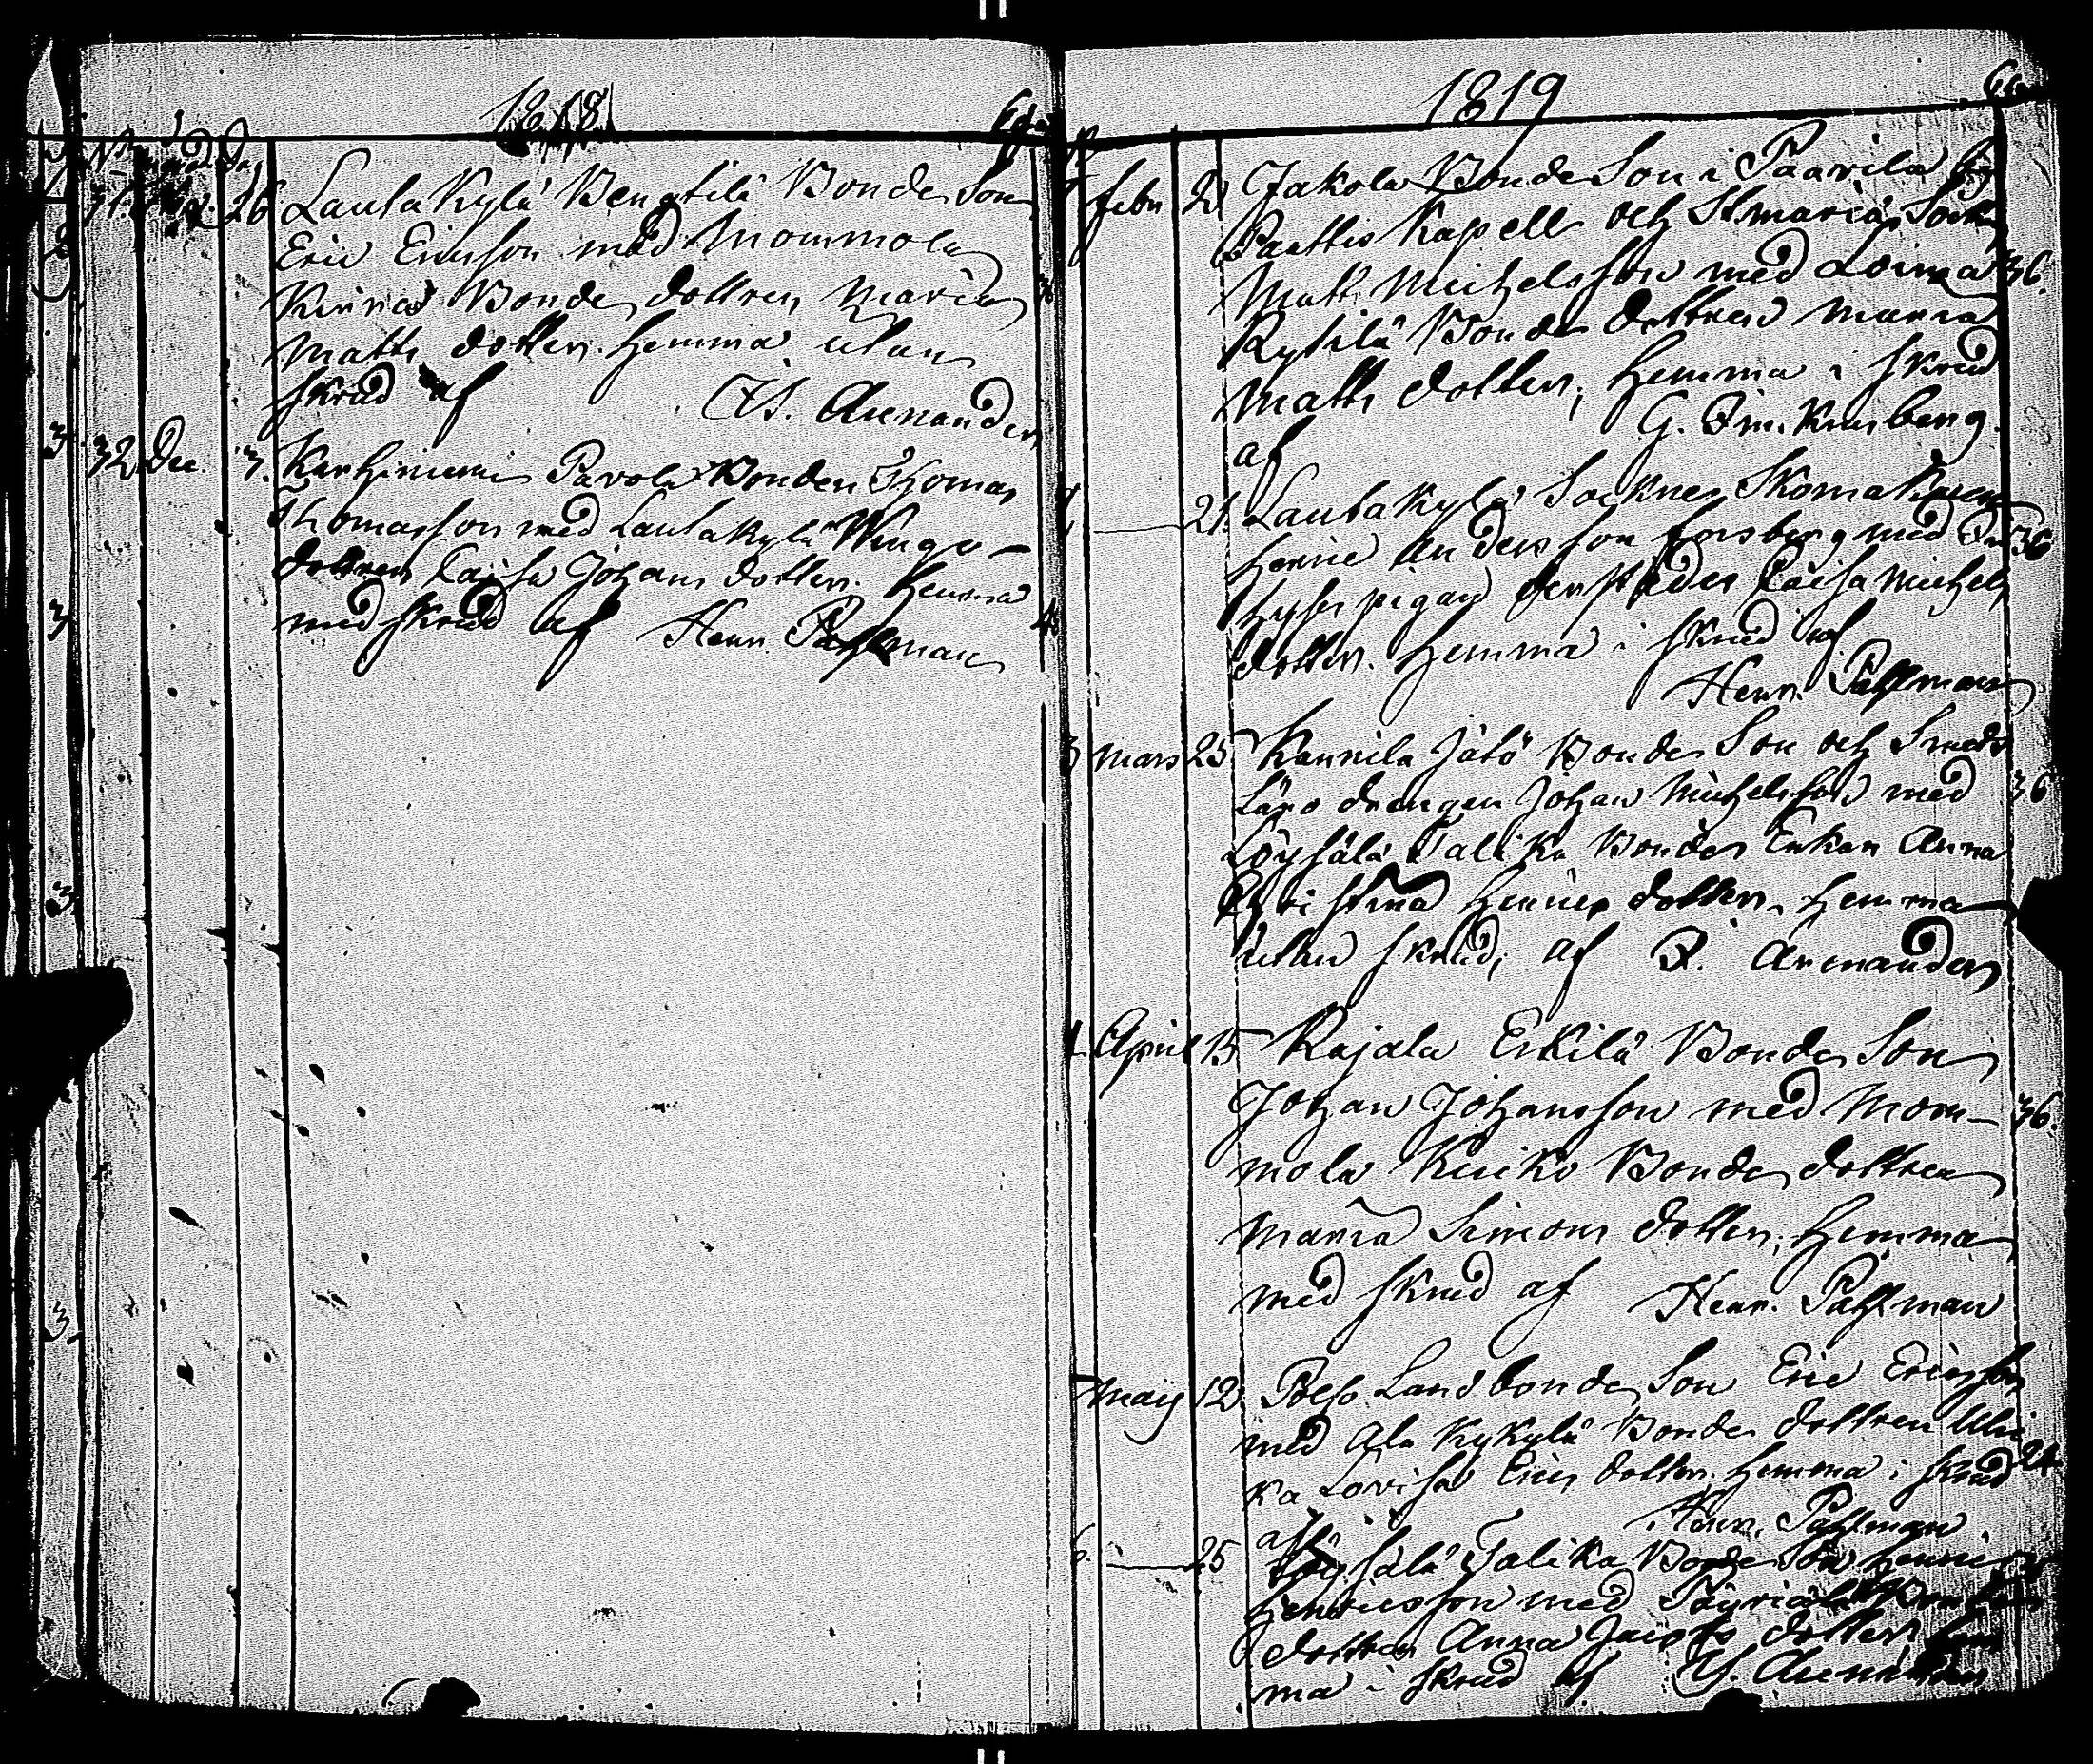 1818
31. 26 Lautakylä Bengtilä Bonde Son
Eric Ericsson med Mommola
Bonde dottren Maria
Matts dotter. hemma utan
skrud af Arenander
32 Dec. 3. Karhiniemi Pavola Bonden Thomas
Thomasson med Lautakylä
dottren Caisa Johans dotter. hemma
med skrud af Henr. Pahlman
1819
febr 2 Jakola Bonde Son i Paavila
Paattis Kapell och St mariæ Sock
Matt Michelsson med Loima 36.
Kytilä Bonde dottren Maria
Matts dotter, hemma i skrud
af G.
21. Lautakylä Socknes Skomakaren
Henric Andersson forsberg med 36
pigan Caisa Michels
dotter. hemma i skrud af
Henr. Pahlman
3 Mars 25 Kannila Jätö Bonde Son och Smeds
Läro drengen Johan Michelsson med 36
Löysälä Talika Bonde Enkan Anna
Christina Henrics dotter, hemma
utan skrud, af Arenander
April 15 Rajala Erkilä Bonde Son
Johan Johansson med Mom- 36.
mola Keiko Bonde dottren
Maria Simons dotter, hemma
med skrud af Henr. Pahlman
Maij 12 Polso Landbonde Son Eric Ericsson
med Ala Kykylä Bonde dottren Ulri 24
ka Lovisa Erics dotter. hemma i skrud
af Henr. Pahlman
6. 25 Löysälä Talika Bonde Son Henric
Henricsson med
dottren Anna Jacobs dotter hem
ma i skrud af